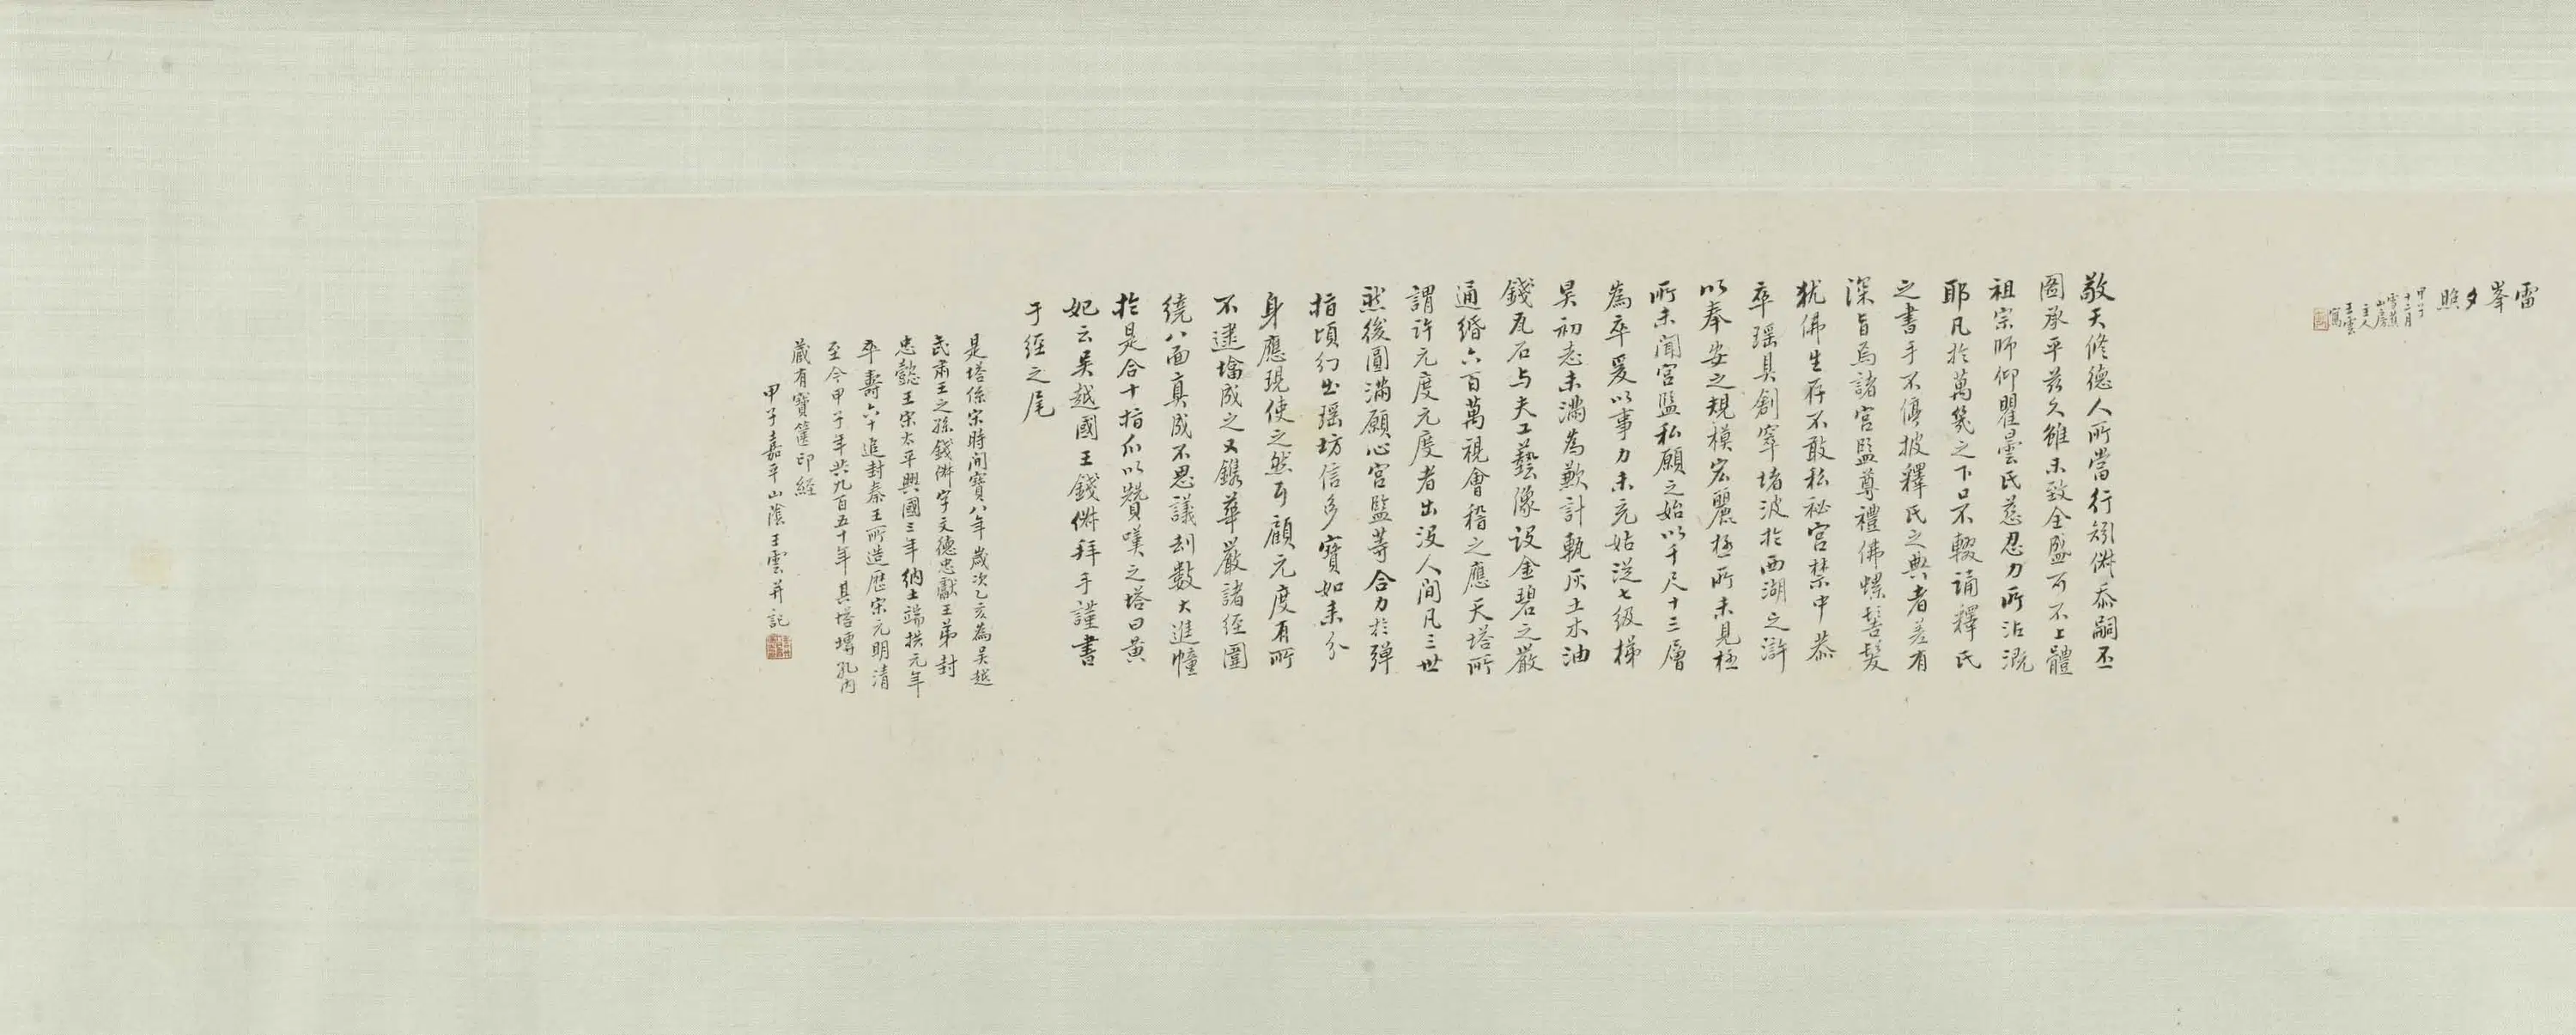 雷峯夕照
甲子
十二月
雪蕉
山房
主人
王雲
寫
敬天修德人所當行矧俶忝嗣丕
圖承平茲久雖未致全盛可不上體
祖宗師仰瞿曇氏慈忍力所沾溉
耶凡於萬幾之下口不輟誦釋氏
之書手不停披釋氏之典者差有
深旨焉諸宮監尊禮佛螺髻髮
猶佛生存不敢私秘宮禁中恭
率瑶具創窣堵波於西湖之滸
以奉安之規模宏麗極所未見極
所未聞宮監私願之始以千尺十三層
為率爰以事力未充姑從七級梯
旻初志未滿為歉計執灰土木油
錢瓦石与夫工藝像設金碧之嚴
通緡六百萬視會稽之應天塔所
謂許元度元度者出沒人間凡三世
然後圓滿願心宮監等合力於彈
指頃幻出瑶坊信多寶如来分
身應現使之然耳顧元度有所
不逮塔成之又鐫華嚴諸經圍
繞八面真成不思議刼數大進幢
於是合十指爪以贊嘆之塔曰黃
妃云吴越國王錢俶拜手謹書
于經之尾
是塔係宋時開寶八年歲次乙亥為吴越
武肅王之孫錢俶字文德忠獻王弟封
忠懿王宋太平興國三年納土端拱元年
卒壽六十追封秦王所造歷宋元明清
至今甲子年共九百五十年其塔塼孔内
藏有寶篋印經
甲子嘉平山陰王雲并記